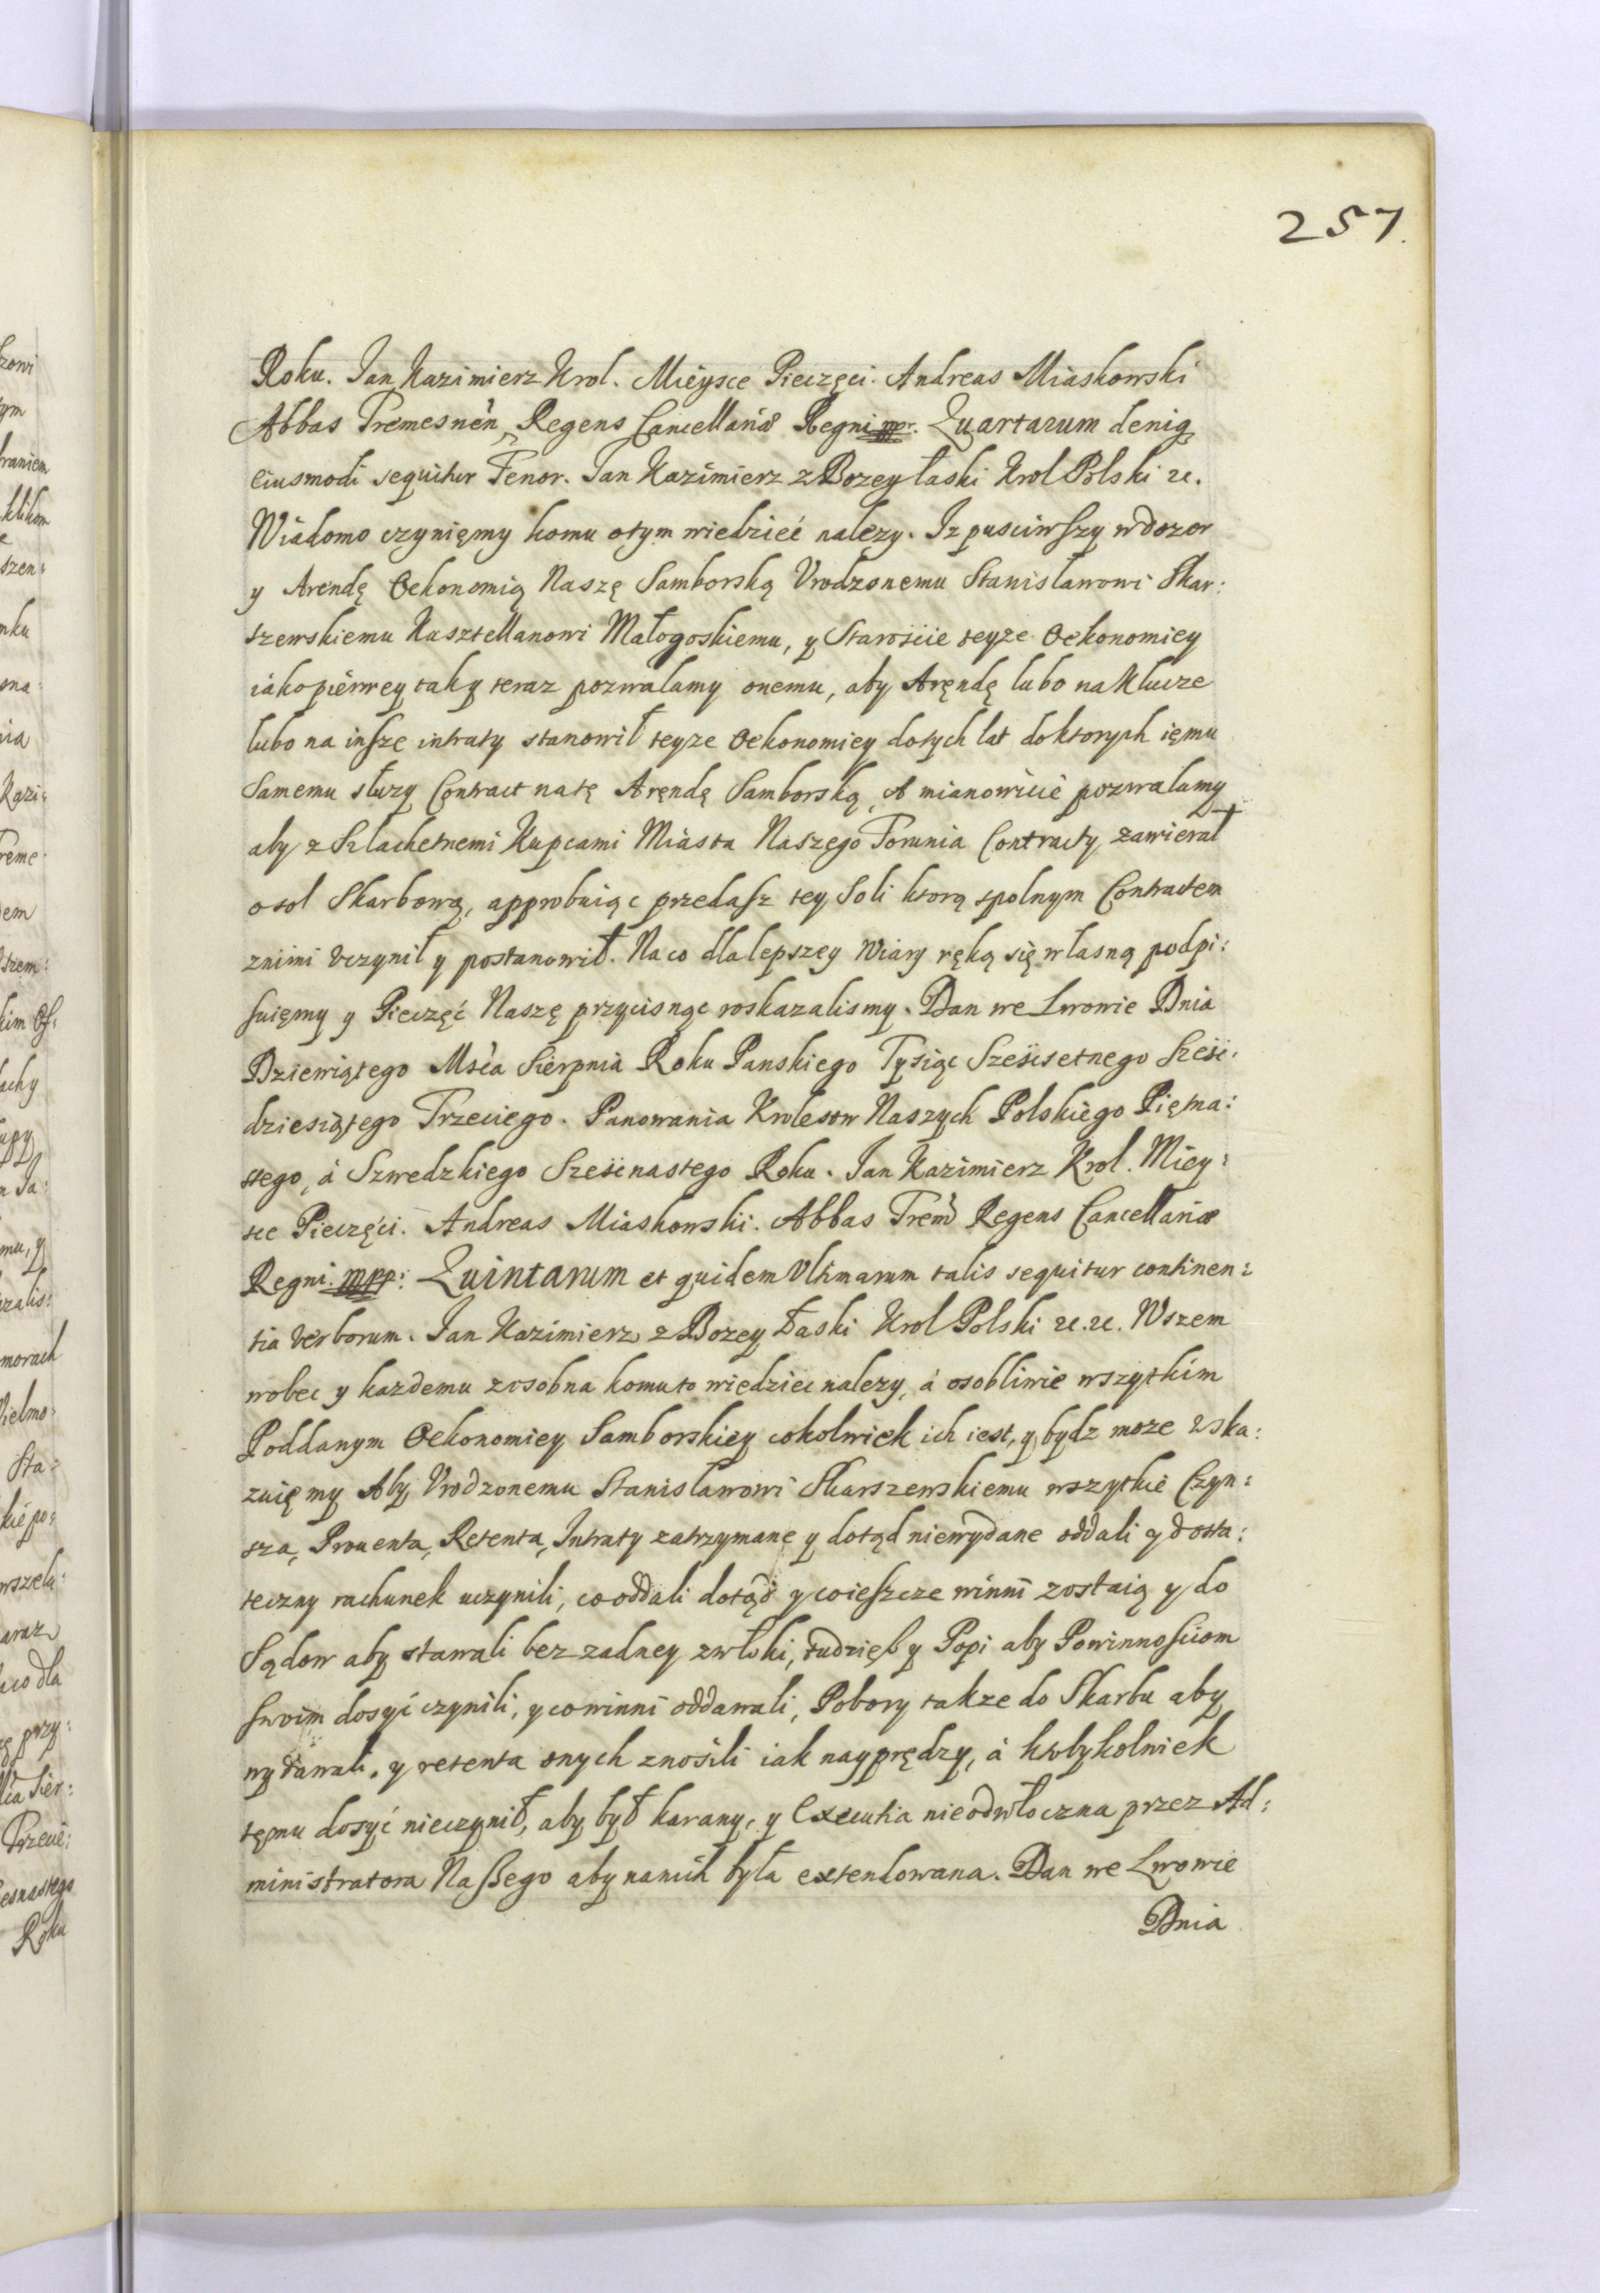 257.
Roku. Jan Kazimierz Krol. Mieysce Pieczęci. Andreas Miaskowski
Abbas Tremesnen, Regens Cancellariæ Regni mpr. Quartarum deniq
eiusmodi sequitur Tenor. Jan Kazimierz z Bozey łaski Krol Polski &c.
Wiadomo czynięmy komu otym wiedzieć nalezy. Iz pusciwszy wdozor
y Arendę Oekonomią Naszę Samborską Vrodzonemu Stanisławowi Skar:
szewskiemu Kasztellanowi Małogoskiemu, y Starościе teyze Oekonomiey
iako pierwey tak y teraz pozwalamy onemu, aby Aręndę lubo na Klucze
lubo na insze intraty stanowił teyze Oekonomiey dotych lat doktorych ięmu
Samemu słuzy Contract natę Aręndę Samborską, A mianowicie pozwalamy
aby z Szlachetnemi Kupcami Miasta Naszego Torunia Contracty zawierał
osol Skarbową, approbuiąc przedasz tey Soli ktorą spolnym Contractem
znimi vczynił y postanowił. Na co dla lepszey wiary ręką się własną podpi:
suięmy y Pieczęć Naszę przycisnąc roskazalismy. Dan we Lwowie Dnia
Dziewiątego Msca Sierpnia Roku Panskiego Tysiąc Szescsetnego Szesc:
dziesiątego Trzeciego. Panowania Krolestw Naszych Polskiego Piętna:
stego, á Szwedzkiego Szesc nastego Roku. Jan Kazimierz Krol. Miey:
sce Pieczęci. Andreas Miaskowski. Abbas Trem Regens Cancellariæ
Regni. mpp: Quintarum et quidem Vltimarum talis sequitur continen:
tia verborum. Jan Kazimierz z Bozey Łaski Krol Polski &c. &c. Wszem
wobec y kazdemu zosobna komu to wiedziec nalezy, á osobliwie wszytkim
Poddanym Oekonomiey Samborskiey cokolwiek ich iest, y bydz moze wska:
zuięmy Aby Vrodzonemu Stanisławowi Skarszewskiemu wszytkie Czyn:
sza, Prouenta, Retenta, Intraty zatrzymane y dotąd niewydane oddali y dosta:
teczny rachunek uczynili, co oddali dotąd y coieszcze winni zostaią y do
Sądow aby stawali bez zadney zwłoki, tudziesz y Popi aby Powinnosciom
swoim dosyć czynili, y co winni oddawali, Pobory takze do Skarbu aby
wydawali, y retenta onych znosili iak nayprędzy, á ktobykolwiek
tęmu dosyć nieczynił, aby był karany, y Executia nieodwłoczna przez Ad:
ministratora Naszego aby nanich była extendowana. Dan we Lwowie
Dnia